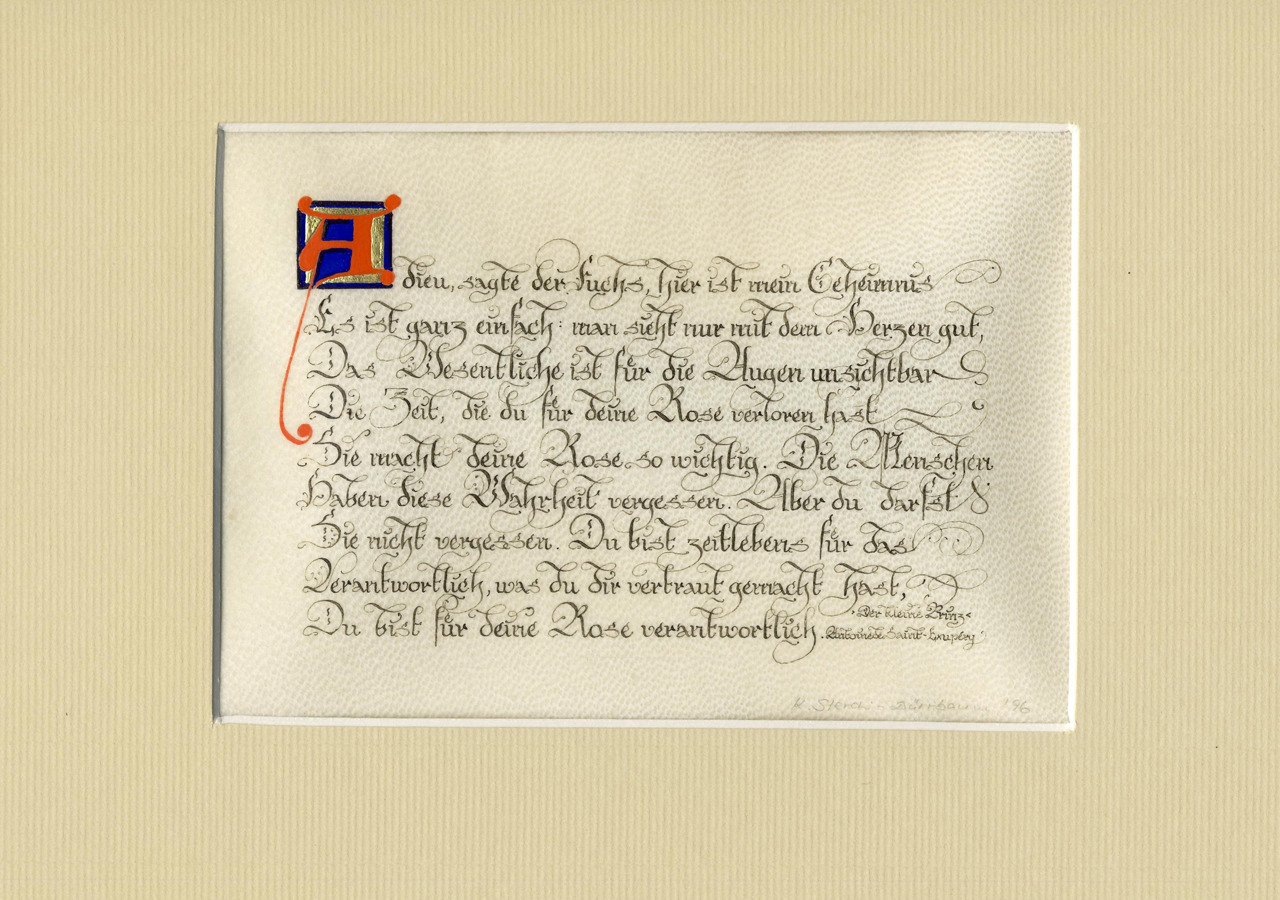 Adieu, sagte der Fuchs, hier ist mein Geheimnis
Es ist ganz einfach: man sieht nur mit dem Herzen gut,
Das Wesentliche ist für die Augen unsichtbar
Die Zeit, die du für deine Rose verloren hast
Sie macht deine Rose so wichtig. Die Menschen
Haben diese Wahrheit vergessen. Aber du darfst
Sie nicht vergessen. Du bist zeitlebens für das
Verantwortlich, was du dir vertraut gemacht hast,
Du bist für deine Rose verantwortlich.
Der kleine Prinz
Antoine de Saint-Exupery
K. '96